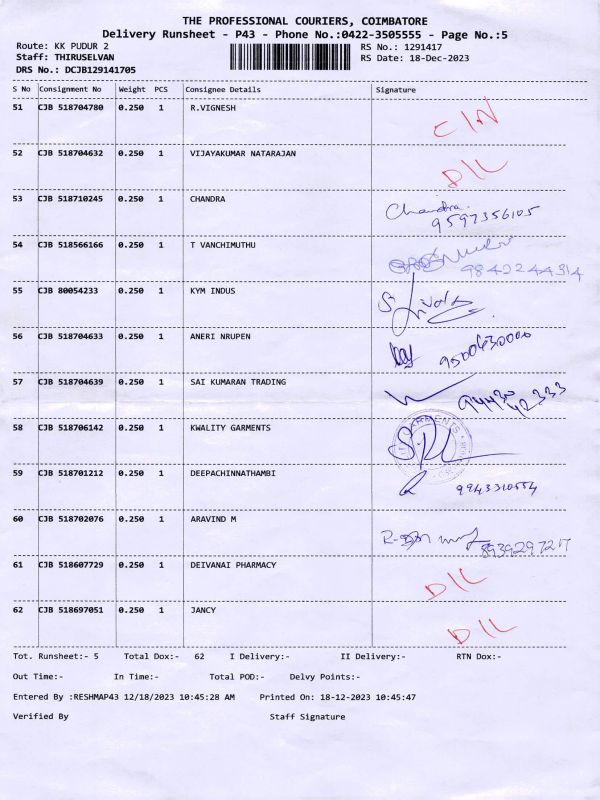 THE PROFESSIONAL COURIERS, COIMBATORE
Delivery Runsheet - P43 - Phone No.:0422-3505555 - Page No.:5
Route: KK PUDUR 2 RS No.: 1291417
Staff: THIRUSELVAN RS Date: 18-Dec-2023
DRS No.: DCJB129141705
S No Consignment No Weight PCS Consignee Details Signature
51 CJB 518704780 0.250 1 R.VIGNESH
52 CJB 518704632 0.250 1 VIJAYAKUMAR NATARAJAN
D/L
53 CJB 518710245 0.250 1 CHANDRA Chandra.
9597356105
54 CJB 518566166 0.250 1 T VANCHIMUTHU
9842244314
55 CJB 80054233 0.250 1 KYM INDUS
56 CJB 518704633 0.250 1 ANERI NRUPEN 9500630000
57 CJB 518704639 0.250 1 SAI KUMARAN TRADING 94430
42333
58 CJB 518706142 0.250 1 KWALITY GARMENTS
59 CJB 518701212 0.250 1 DEEPACHINNATHAMBI
9943310554
60 CJB 518702076 0.250 1 ARAVIND M
8939297217
61 CJB 518607729 0.250 1 DEIVANAI PHARMACY
D/L
62 CJB 518697051 0.250 1 JANCY
D/L
Tot. Runsheet:- 5 Total Dox:- 62 I Delivery:- II Delivery:- RTN Dox:-
Out Time:- In Time:- Total POD:- Delvy Points:-
Entered By :RESHMAP43 12/18/2023 10:45:28 AM Printed On: 18-12-2023 10:45:47
Verified By Staff Signature